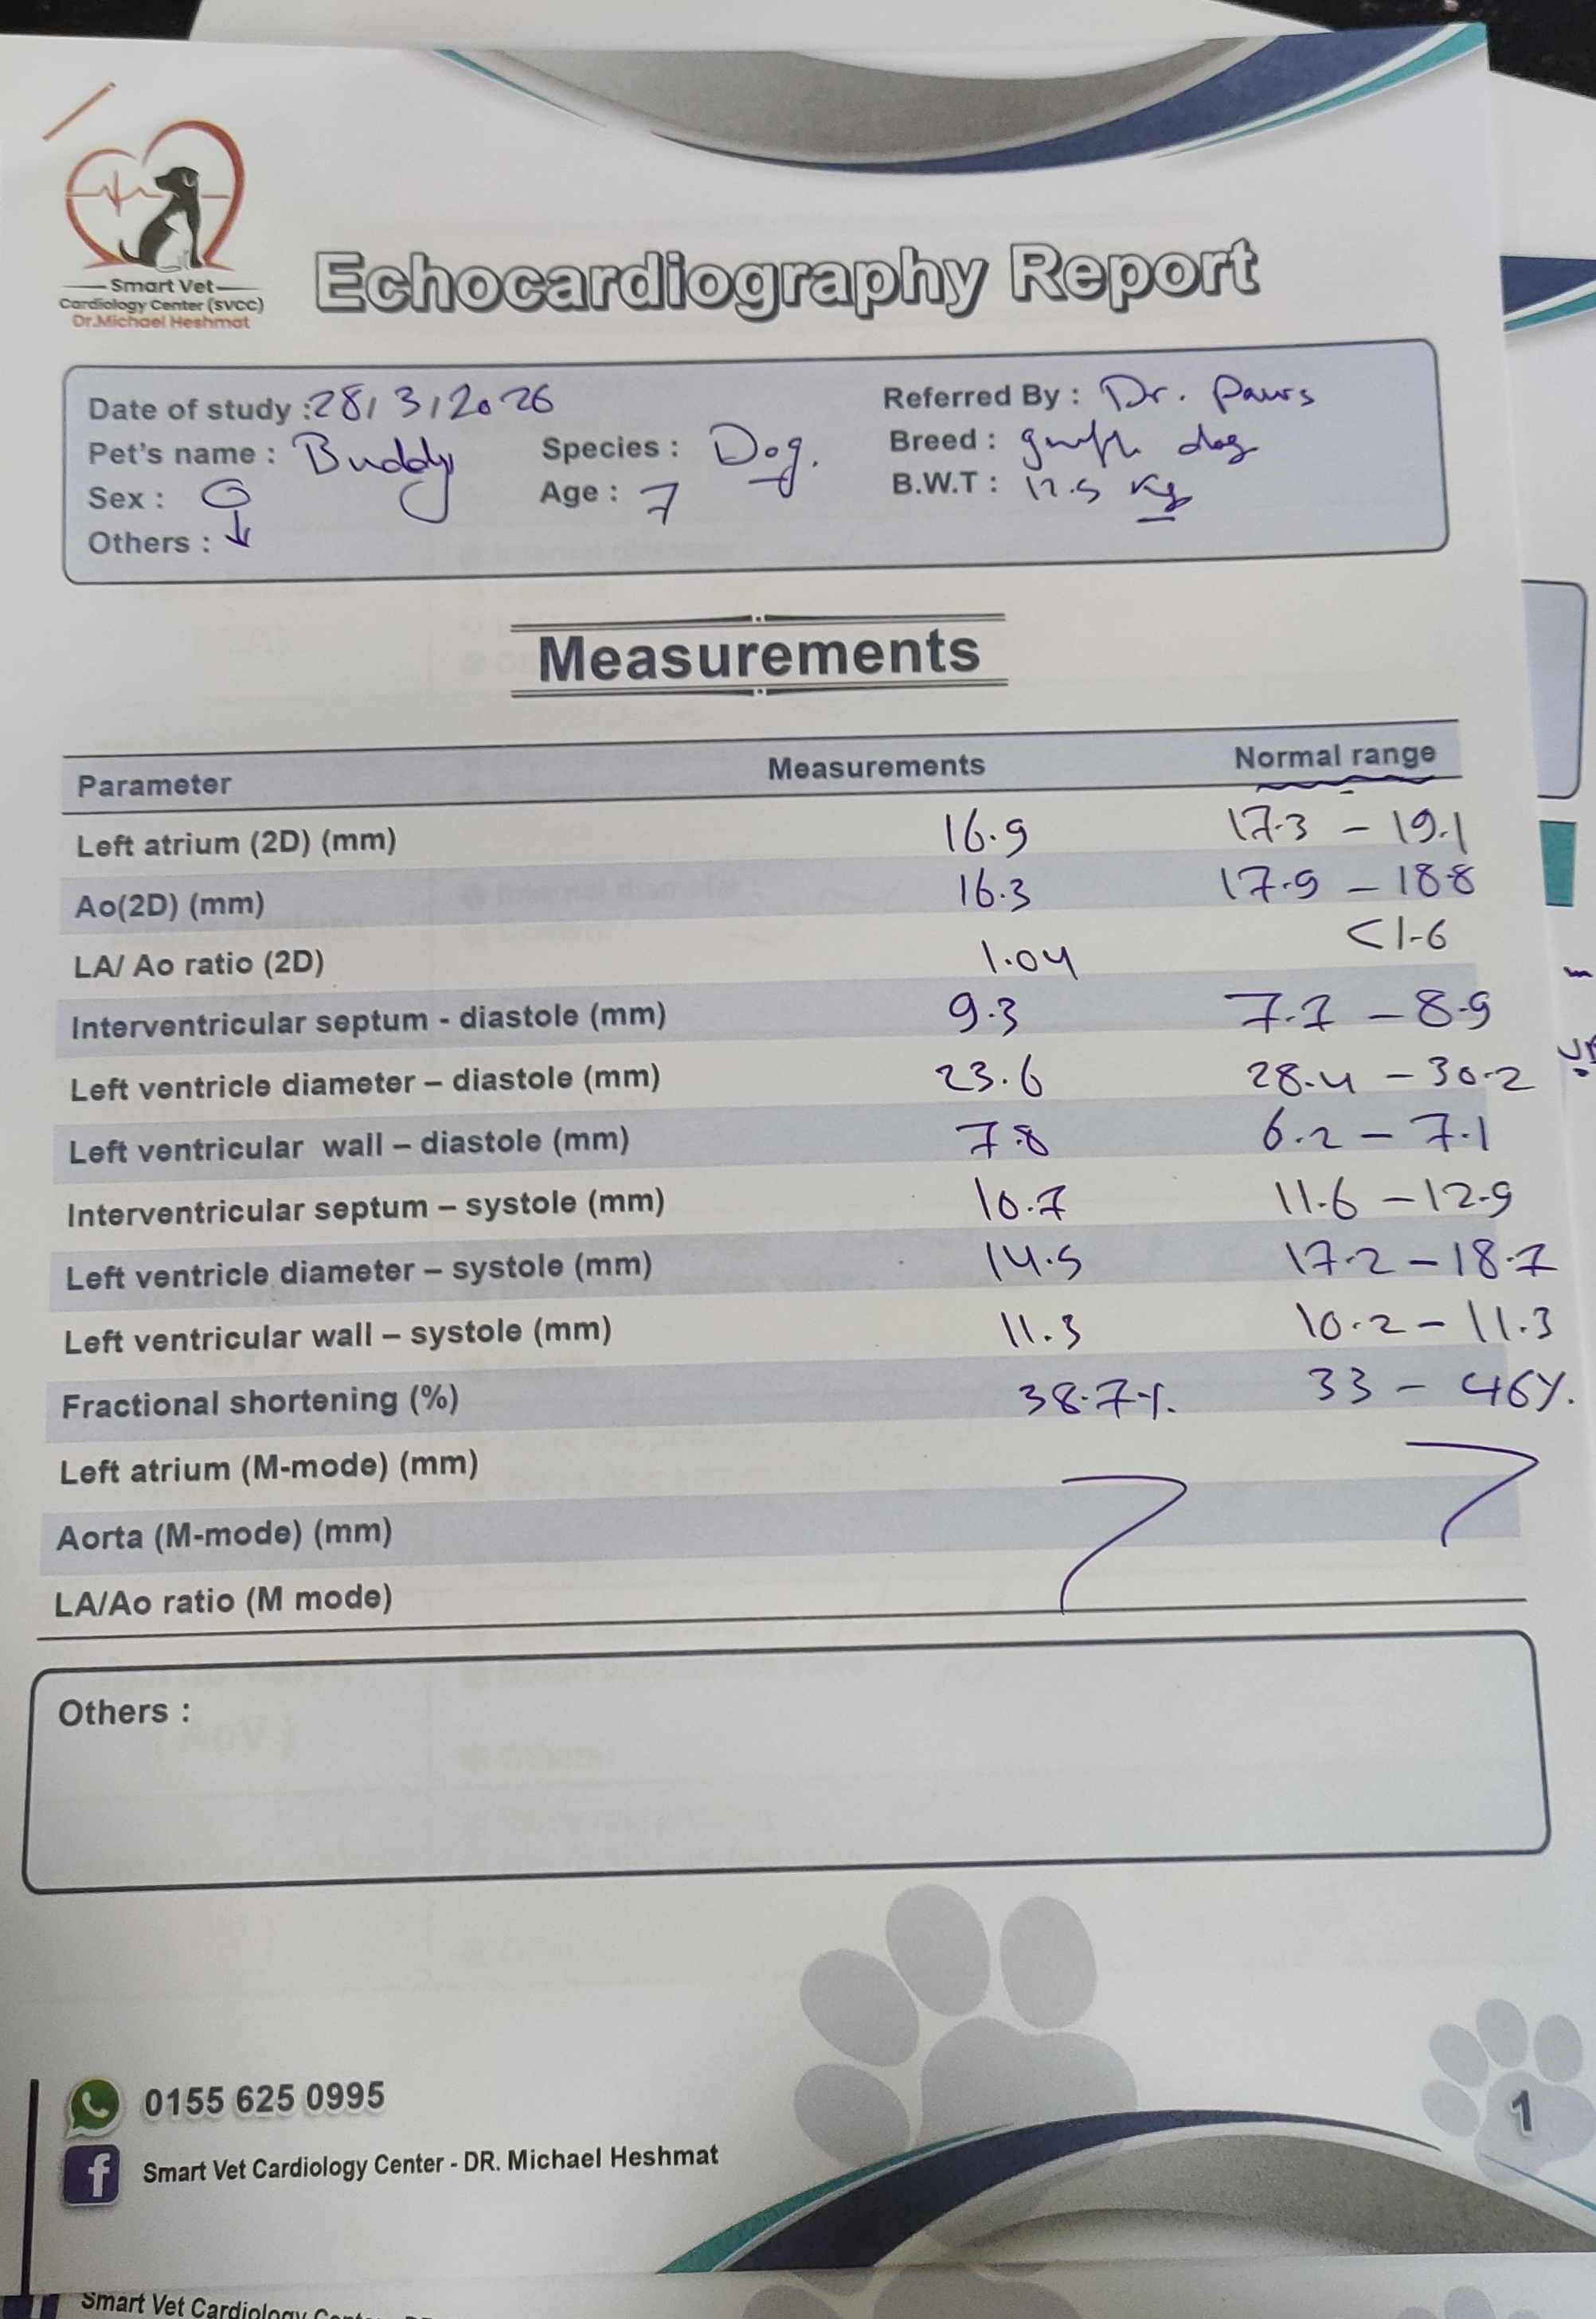 Smart Vet
Cardiology Center (SVCC)
Dr.Michael Heshmat
Echocardiography Report
Date of study : 28/3/2026 Referred By : Dr. Paws
Pet's name : Buddy Species : Dog. Breed : dog
Sex : Age : 7 B.W.T : 12.5 Kg
Others :
Measurements
Parameter Measurements Normal range
Left atrium (2D) (mm) 16.9 17.3 - 19.1
Ao(2D) (mm) 16.3 17.9 - 18.8
LA/ Ao ratio (2D) 1.04 <1.6
Interventricular septum - diastole (mm) 9.3 7.7 - 8.9
Left ventricle diameter – diastole (mm) 23.6 28.4 - 30.2
Left ventricular wall – diastole (mm) 7.8 6.2 - 7.1
Interventricular septum – systole (mm) 10.7 11.6 - 12.9
Left ventricle diameter – systole (mm) 14.5 17.2 - 18.7
Left ventricular wall – systole (mm) 11.3 10.2 - 11.3
Fractional shortening (%) 38.7% 33 - 46%.
Left atrium (M-mode) (mm)
Aorta (M-mode) (mm)
LA/Ao ratio (M mode)
Others :
0155 625 0995
Smart Vet Cardiology Center - DR. Michael Heshmat
1
Smart Vet Cardiology